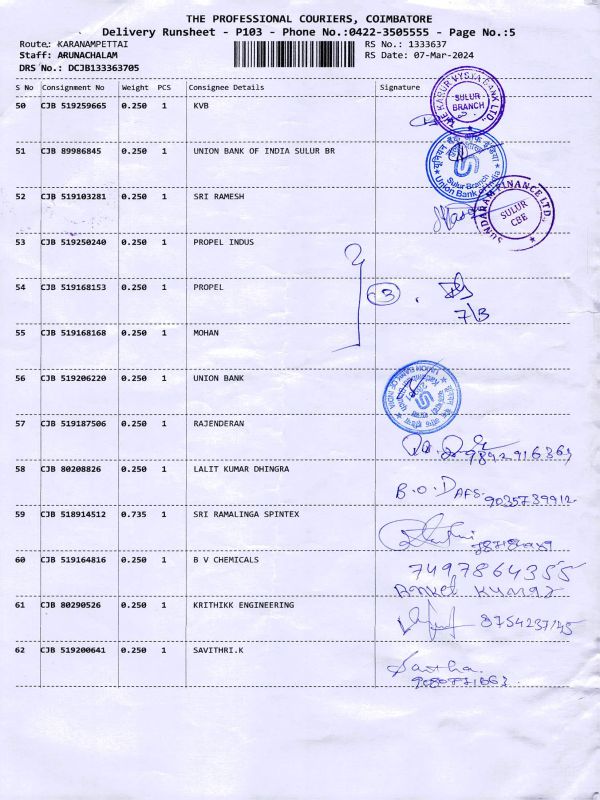 THE PROFESSIONAL COURIERS, COIMBATORE
Delivery Runsheet - P103 - Phone No.:0422-3505555 - Page No.:5
Route: KARANAMPETTAI RS No.: 1333637
Staff: ARUNACHALAM RS Date: 07-Mar-2024
DRS No.: DCJB133363705
S No Consignment No Weight PCS Consignee Details Signature
50 CJB 519259665 0.250 1 KVB
SULUR
BRANCH
51 CJB 89986845 0.250 1 UNION BANK OF INDIA SULUR BR
Sulur Branch
Union Bank of India
52 CJB 519103281 0.250 1 SRI RAMESH
SUNDARAM FINANCE LTD.,
SULUR
CBE
53 CJB 519250240 0.250 1 PROPEL INDUS
54 CJB 519168153 0.250 1 PROPEL
3
7/3
55 CJB 519168168 0.250 1 MOHAN
56 CJB 519206220 0.250 1 UNION BANK
57 CJB 519187506 0.250 1 RAJENDERAN
9892916363
58 CJB 80208826 0.250 1 LALIT KUMAR DHINGRA
B.O DAFS. 9035739912
59 CJB 518914512 0.735 1 SRI RAMALINGA SPINTEX
60 CJB 519164816 0.250 1 B V CHEMICALS
7497864355
Anket Kumar
61 CJB 80290526 0.250 1 KRITHIKK ENGINEERING
8754237145
62 CJB 519200641 0.250 1 SAVITHRI.K